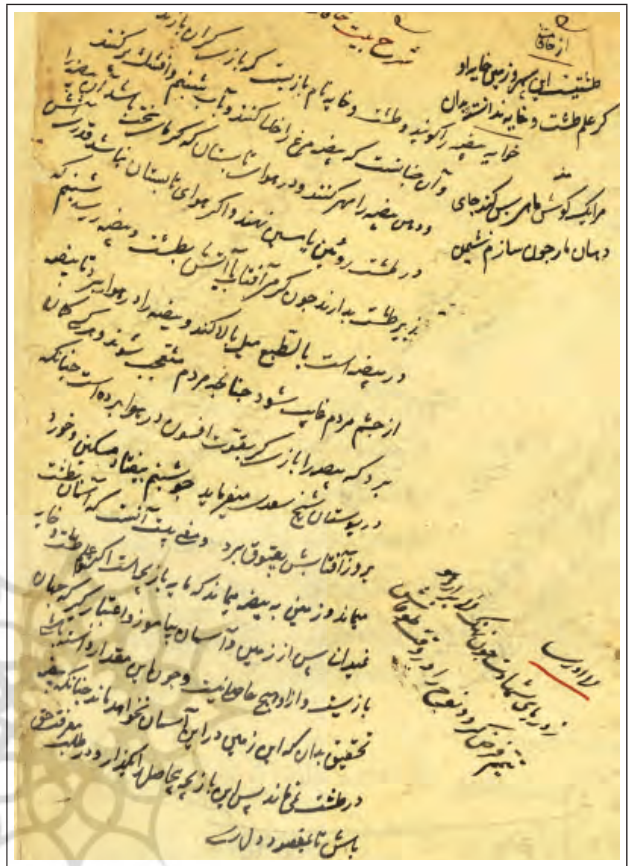 شرح بیت خاقانی
از خاقانی
طشتیست این سپهر و زمین خایه در او
گر علم طشت و خایه ندانسته بدان
خوایه بیضه را گویند و طشت و خایه نام بازیست که بازی گران بازند
و آن چنانست که بیضه مرغ را خالی کنند و بآب شبنم
و دهن بیضه را مهر کنند و در هوای تابستان که گرمای سخت باشد آن بیضه را
در طشت رویین یا مسین نهند و اگر هوای تابستان نباشد قدری آتش
بزیر طشت بدارند چون گرمی آفتاب یا آتش بطشت و بیضه رسد شبنم که
در بیضه است بالطبع میل بالا کند و بیضه را در هوا برد تا بیضه
از چشم مردم غایب شود چنانچه مردم متعجب شوند و هر کس گمان
برد که بیضه را بازی گر بقوت افسون در هوا برده است چنانکه
در بوستان شیخ سعدی میفرماید چو شبنم بیفتاد مسکین و خورد
بروز آفتابش بعیوق برد و معنی بیت آنست که آسمان بطشت
میماند و زمین به بیضه میماند که مایه بازیچه است اگر علم طشت و خایه
نمیدانی پس از زمین و آسمان بیاموز و اعتبار گیر که جهان
بازیست و از او هیچ حاصل نیست و چون این مقدار دانسته باشی
تحقیق بدان که این زمین در این آسمان نخواهد ماند چنانکه بیضه
در طشت نمیماند پس این بازیچه بی حاصل را بگذار و در طلب معرفت حق
باش تا بمقصود دل رسی
مرا یک گوش ماهی بس کند جای
دهان مار چون سازم نشیمن
لا ادری
ز دریای شهادت چون نهنگ لا برآرد هو
تیمم فرض گردد نوح را در وقت طوفانش